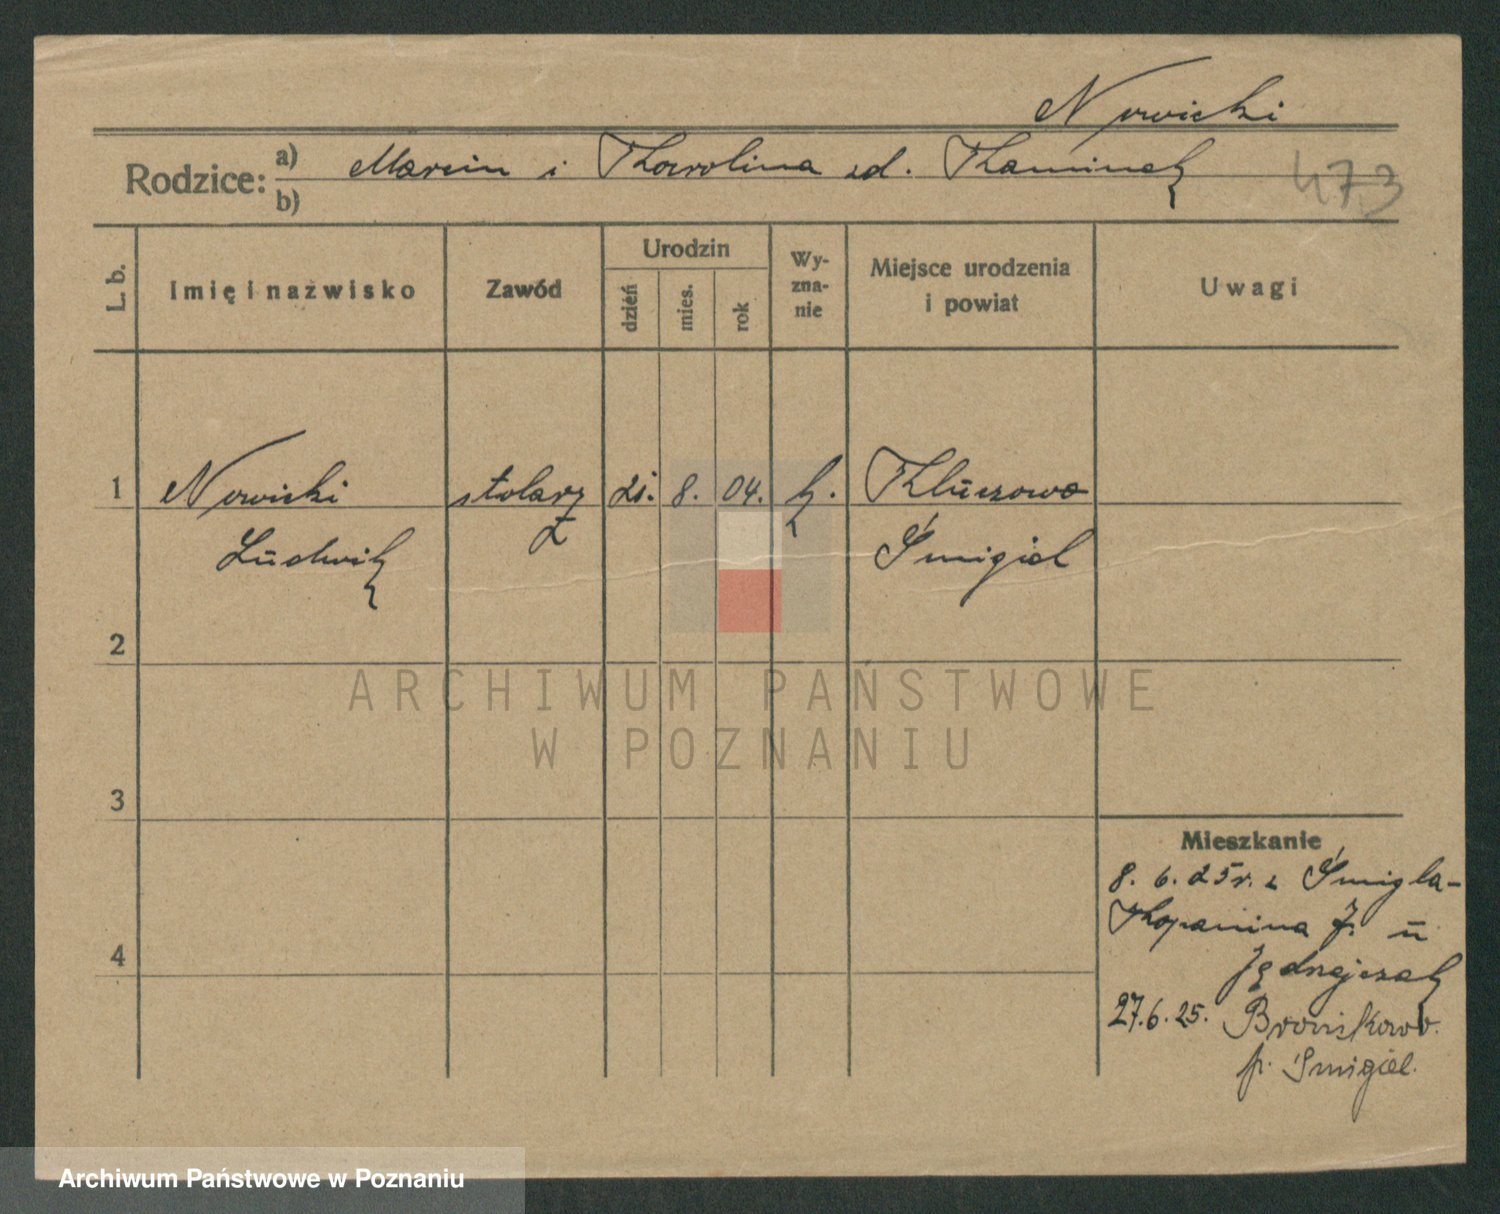 Nowicki
Rodzice: a) Marcin i Karolina zd. Kaminek
b)
473
L. b.
Imię i nazwisko
Zawód
Urodzin
dzień
mies.
rok
Wy-
zna-
nie
Miejsce urodzenia
i powiat
Uwagi
1 Nowicki stolarz 21. 8. 04. k. Kluczowo
Ludwik Śmigiel
2
ARCHIWUM PAŃSTWOWE
W POZNANIU
3
Mieszkanie
8. 6. 25 r. z Śmigla-
Kopanina 7. u
4
Jędrzejczak
27.6.25. Bronikowo
p. Śmigiel.
Archiwum Państwowe w Poznaniu